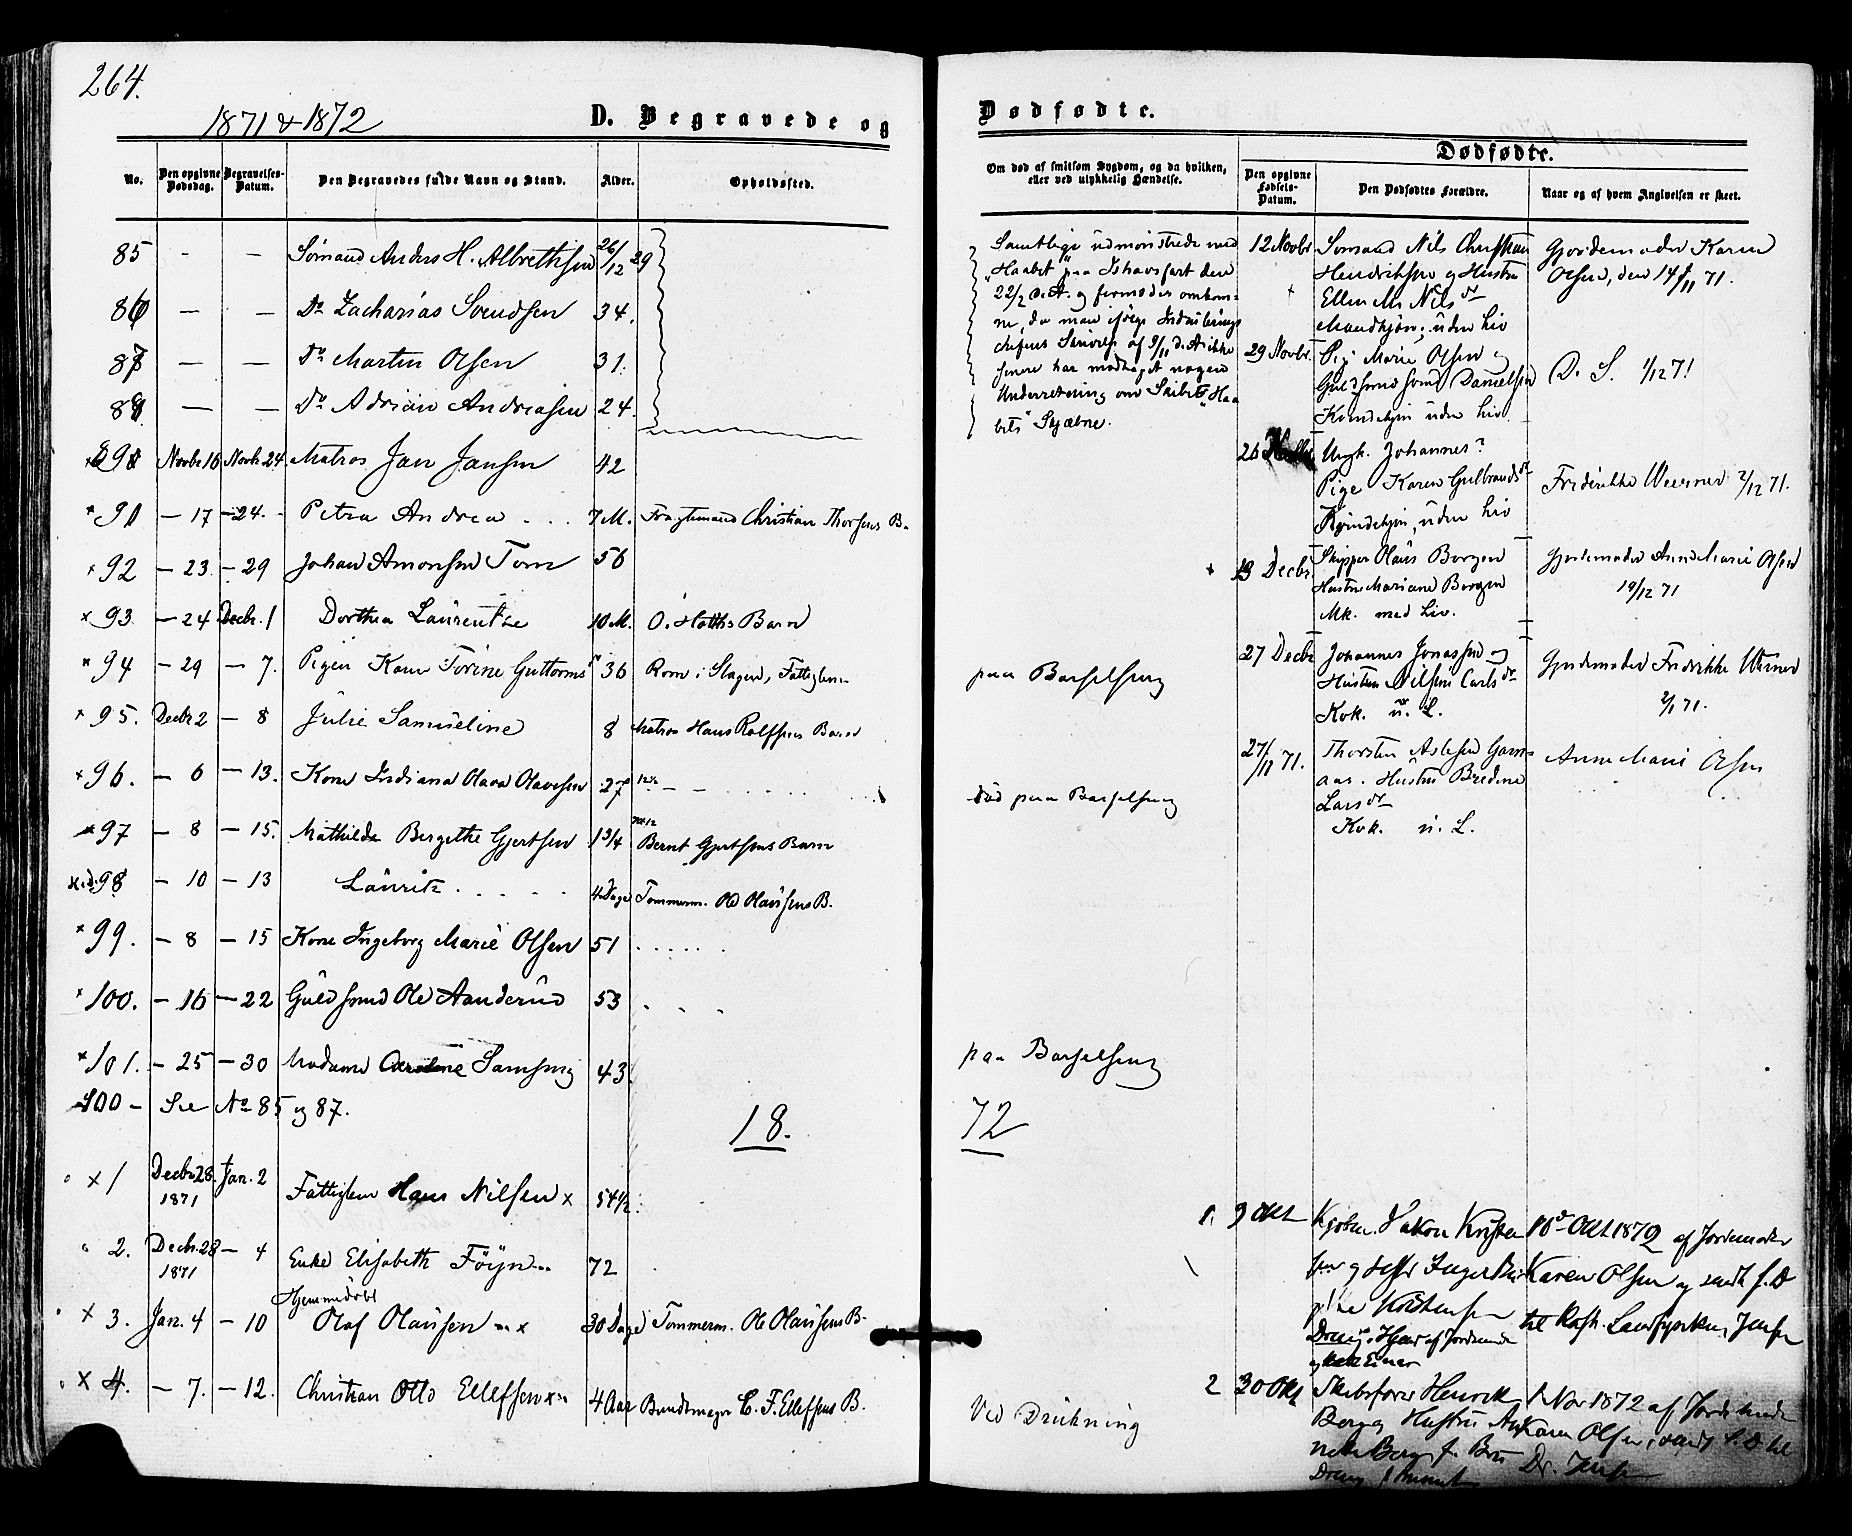 264.
1871 & 1872
D. Begravede og
No. Den opgivne Dødsdag. Begravelses-Datum. Den Begravedes fulde Navn og Stand. Alder. Opholdssted.
85 - - Sømand Anders H. Albrethsen 26/12 29
86 - - Do Zacharias Svendsen 34.
87 - - Do Martin Olsen 31.
88 - - Do Adrian Andreasen 24.
89 Novbr 16 Novbr 24. Matros Jan Jansen 42
90 - 17 - 24. Petra Andrea . . . 7 M. Fragtemand Christian Thorsens B.
92 - 23 - 29 Johan Amonsen Tom 56
93 - 24 Decbr. 1 Dorthea Laurentze 10 M. O. Holths Barn
94 - 29 - 7. Pigen Karen Torine Guttorms 36 Rom i Slagen, Fattiglem
95. Decbr 2 - 8 Julie Samueline 8 Matros Hans Rolfsens Barn
96. - 6 - 13. Kone Indiana Olava Olavesen 27
97 - 8 - 15. Mathilde Bergethe Gjertsen 1 3/4 Bernt Gjertsens Barn
H.d. 98 - 10 - 13 Lauritz . . . 4 Dage Tømmerm. Ole Olausens B.
99. - 8 - 15 Kone Ingeborg Marie Olsen 51
100. - 16 - 22 Guldsmed Ole Aanderud 53
101. - 25 - 30 Madame Caroline Samsing 43
100 - See No 85 og 87.
18.
1 Decbr 28 1871 Jan. 2 Fattiglem Hans Nilsen x 54 1/2
2. Decbr. 28 1871 - 4 Enke Elisabeth Föyn 72
Hjemmedøbt
3. Jan. 4 - 10 Olaf Olausen 30 Dage Tømmerm. Ole Olausens B.
4. - 7. - 12. Christian Otto Ellefsen 4 Aar Bundtmager C. F. Ellefsens B.
Dødfødte.
Om død af smitsom Sygdom, og da hvilken, eller ved ulykkelig Hændelse.
Dødfødte.
Den opgivne Fødsels-Datum. Den Dødfødtes Forældre. Naar og af hvem Angivelsen er skeet.
Samtlige udmønstrede med
"Haabet" paa Ishavsfart den
22/2 d. A. og formodes omkom-
ne, da man ifølge Indrullerings
chefens Skrivelse af 9/11 d. A. ikke
senere har modtaget nogen
Underretning om Skibet "Haa
bets" Skjæbne.
12 Novbr Sømand Nils Christian
Hendriksen og Hustru
Ellen M. Nilsdr
Mandkjøn, uden Liv
Gjordemoder Karen
Olsen, den 14/11 71.
29 Novbr. Pige Marie Olsen og
Guldsmedsvend Danielsen
Kvindekjøn uden Liv
D. S. 1/12 71
26 Ungk. Johannes?
Pige Karen Gulbrandsdr
Kvindekjøn, uden Liv
Frederikke Weerner 2/12 71.
13 Decbr. Skipper Olaus Bergen
Hustru Mariane Bergen
Mk. med Liv.
Gjordemoder Anne Marie Olsen
19/12 71
paa Barselseng
27 Decbr Johannes Jonassen og
Hustru Nilsine Carlsdr
Kvk. u. L.
Gjordemoder Fredrikke Werner
2/1 71.
død paa Barselseng
27/11 71. Thorsten Aslesen Gam-
aas. Hustru Bredine
Larsdr
Kvk. u. L.
Anne Marie Olsen
paa Barselseng
72
1. 9 Okt Kjøbm. Hakon Kristen
10de Okt 1872 af Jordemoder
Karen Olsen og sendt f. D
til Kst. Landfysikus Jensen
Ved Drukning
2 30 Okt Skibsfører Henrik
Berg og Hustru
1 Nov 1872 af Jordemoder
Karen Olsen, sendt f. D. til
Dr. Jensen